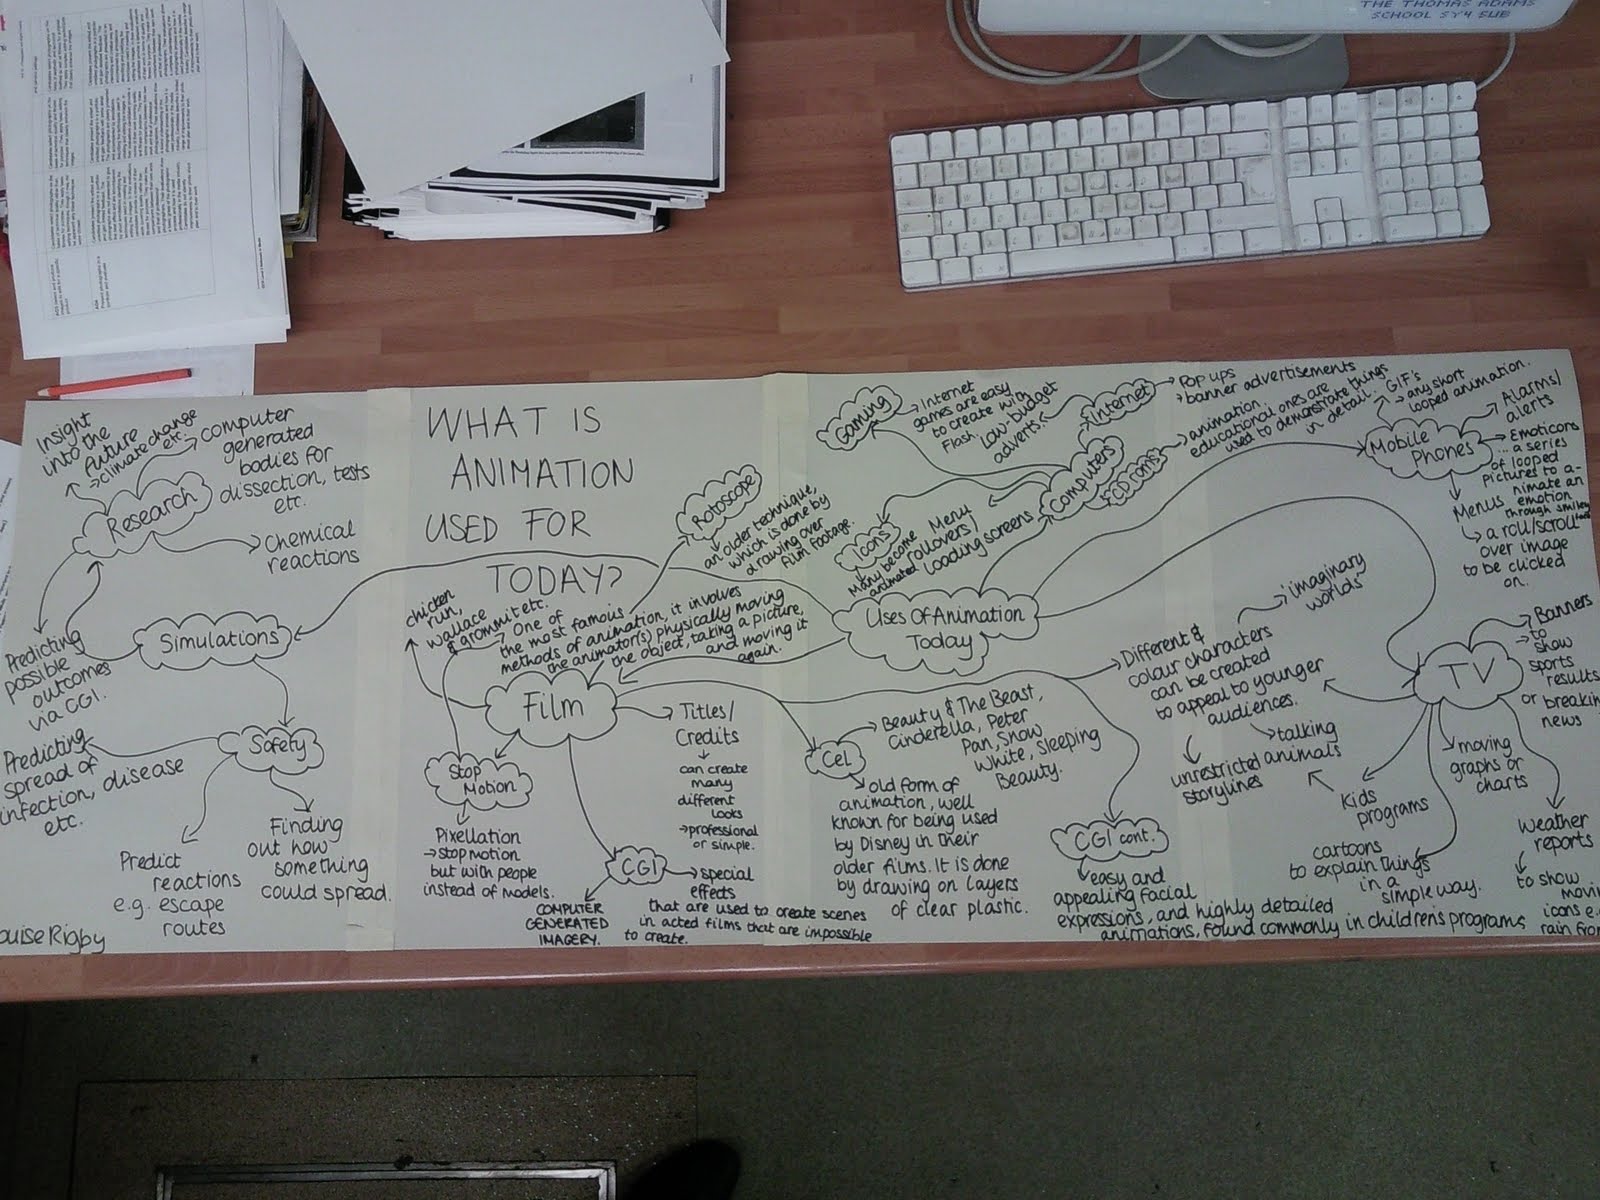 THE THOMAS ADAMS
SCHOOL SY4 5UB
WHAT IS
ANIMATION
USED FOR
TODAY?
Insight
into the
future
→ climate change
etc.
computer
generated
bodies for
dissection, tests
etc.
Research
chemical
reactions
Predicting
possible
outcomes
via CGI.
Simulations
Safety
Predicting
spread of
infection, disease
etc.
Predict
reactions
e.g. escape
routes
Finding
out how
something
could spread.
ouise Rigby
Rotoscope
an older technique,
which is done by
drawing over
film footage.
chicken
run,
wallace
& grommit etc.
→ One of
the most famous
methods of animation, it involves
the animator(s) physically moving
the object, taking a picture,
and moving it
again.
Film
Stop
Motion
Pixellation
→ Stop motion
but with people
instead of models.
Titles/
Credits
can create
many
different
looks
→ professional
or simple.
CGI
COMPUTER
GENERATED
IMAGERY.
special
effects
that are used to create scenes
in acted films that are impossible
to create.
Cel
Beauty & The Beast,
Cinderella, Peter
Pan, Snow
White, Sleeping
Beauty.
old form of
animation, well
known for being used
by Disney in their
older films. It is done
by drawing on layers
of clear plastic.
CGI cont.
easy and
appealing facial
expressions, and highly detailed
animations, found commonly in childrens programs
Uses Of Animation
Today
Gaming
Internet
games are easy
to create with
Flash.
Low-budget
adverts.
Internet
Pop ups
banner advertisements
Computers
& CD roms
animation.
educational ones are
used to demonstrate things
in detail.
Icons
Many become
animated
Menu
rollovers/
Loading screens
Mobile
Phones
GIF's
→ any short
looped animation.
Alarms/
alerts
Emoticons
... a series
of looped
pictures to a-
nimate an
emotion
through smiley
Menus
a roll/scroll
over image
to be clicked
on.
Different &
colour characters
can be created
to appeal to younger
audiences.
'imaginary
worlds'
talking
animals
unrestricted
storylines
TV
Banners
→ to
show
sports
results
or breakin
news
moving
graphs or
charts
Kids
programs
cartoons
to explain things
in a
simple way.
Weather
reports
to show
movi
icons e.
rain fro